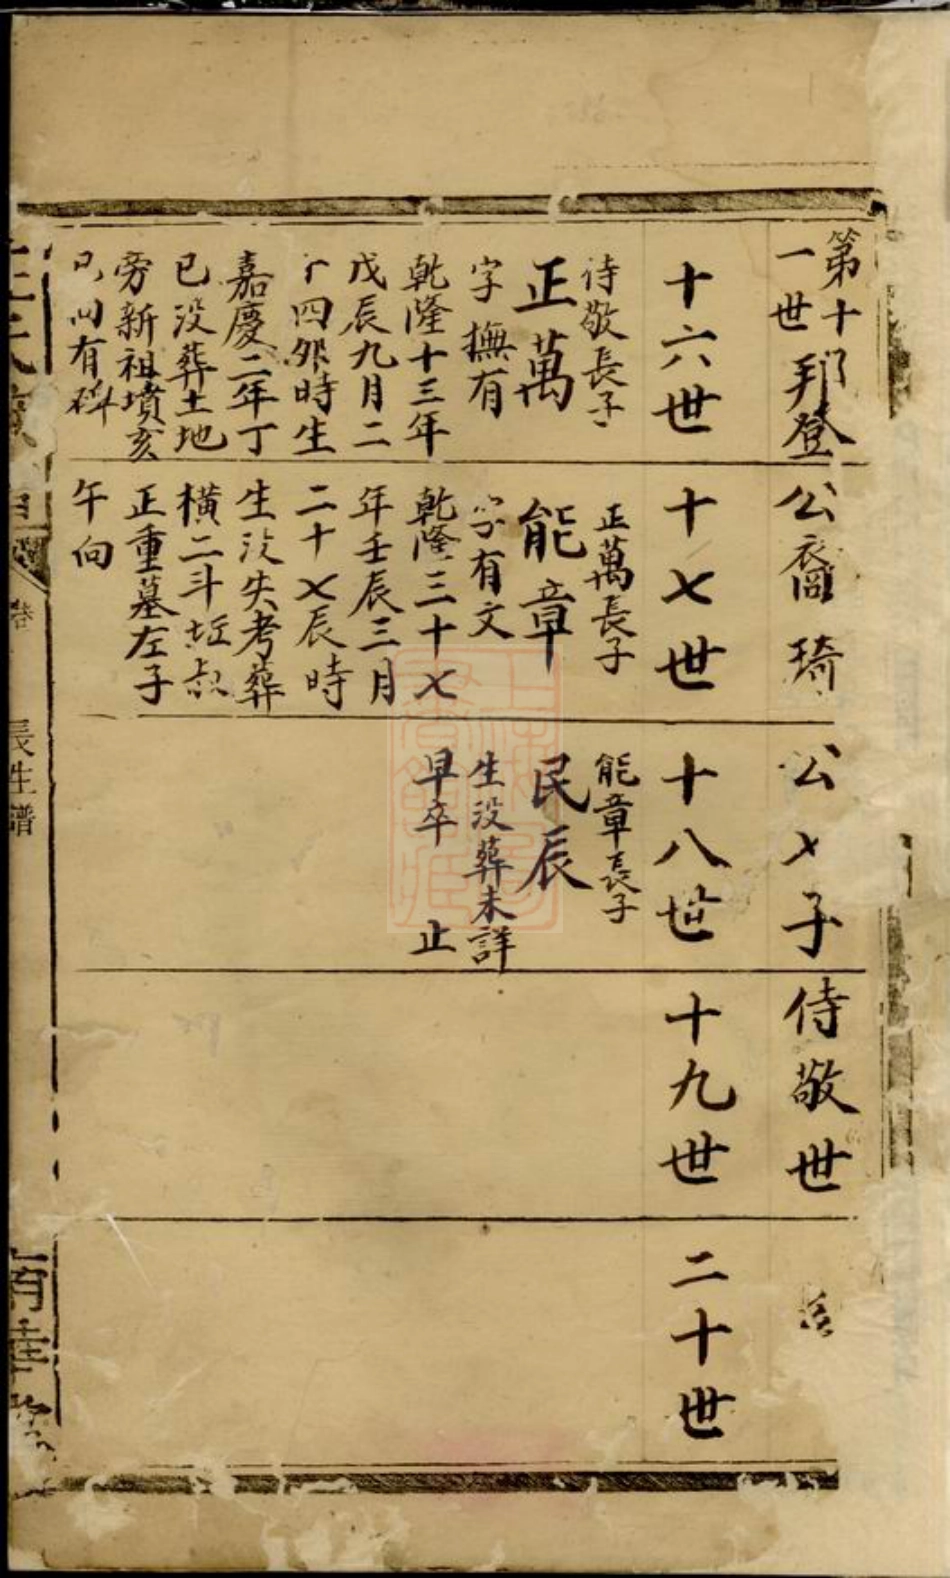 第十
一世邦登公裔琦公乂子侍敬世
十六世
侍敬長子
正萬
字撫有
乾隆十三年
戊辰九月二
十四夘時生
嘉慶二年丁
巳没葬土地
旁新祖墳亥
向有碑
十七世
正萬長子
能章
字有文
乾隆三十七
年壬辰三月
二十七辰時
生没失考葬
橫二斗坵叔
正重墓左子
午向
十八世
能章長子
民辰
生没葬未詳
早卒 止
十九世
二十世
長生譜